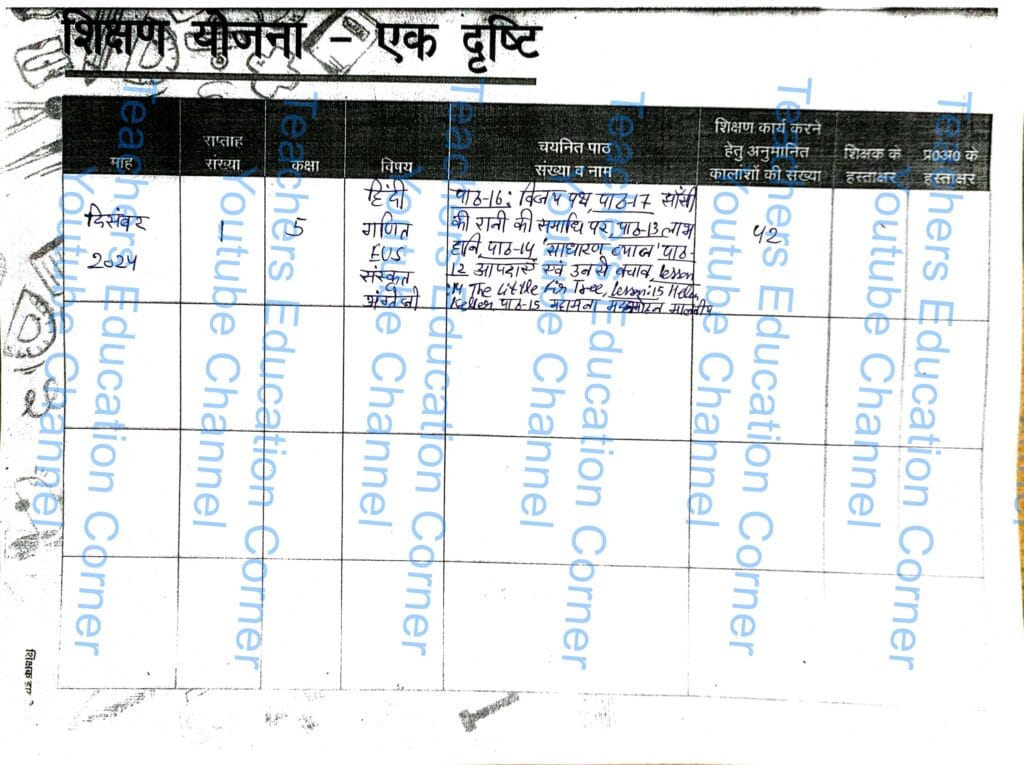 शिक्षण योजना - एक दृष्टि
माह
सप्ताह
संख्या
कक्षा
विषय
चयनित पाठ
संख्या व नाम
शिक्षण कार्य करने
हेतु अनुमानित
कालांशों की संख्या
शिक्षक के
हस्ताक्षर
प्र0अ0 के
हस्ताक्षर
दिसंबर
2024
1
5
हिंदी
गणित
EVS
संस्कृत
अंग्रेजी
पाठ-16: विजय पथ, पाठ-17 झाँसी
की रानी की समाधि पर, पाठ-13 लाभ
हानि, पाठ-14 'साधारण ब्याज' पाठ-
12 आपदाएं एवं उनसे बचाव, lesson
:14 The Little Fir Tree, Lesson:15 Helen
Keller, पाठ-15 महामना मदनमोहन मालवीय
42
Teachers Education Corner
Youtube Channel
Teachers Education Corner
Youtube Channel
Teachers Education Corner
Youtube Channel
Teachers Education Corner
Youtube Channel
Teachers Education Corner
Youtube Channel
Teachers Education Corner
Youtube Channel